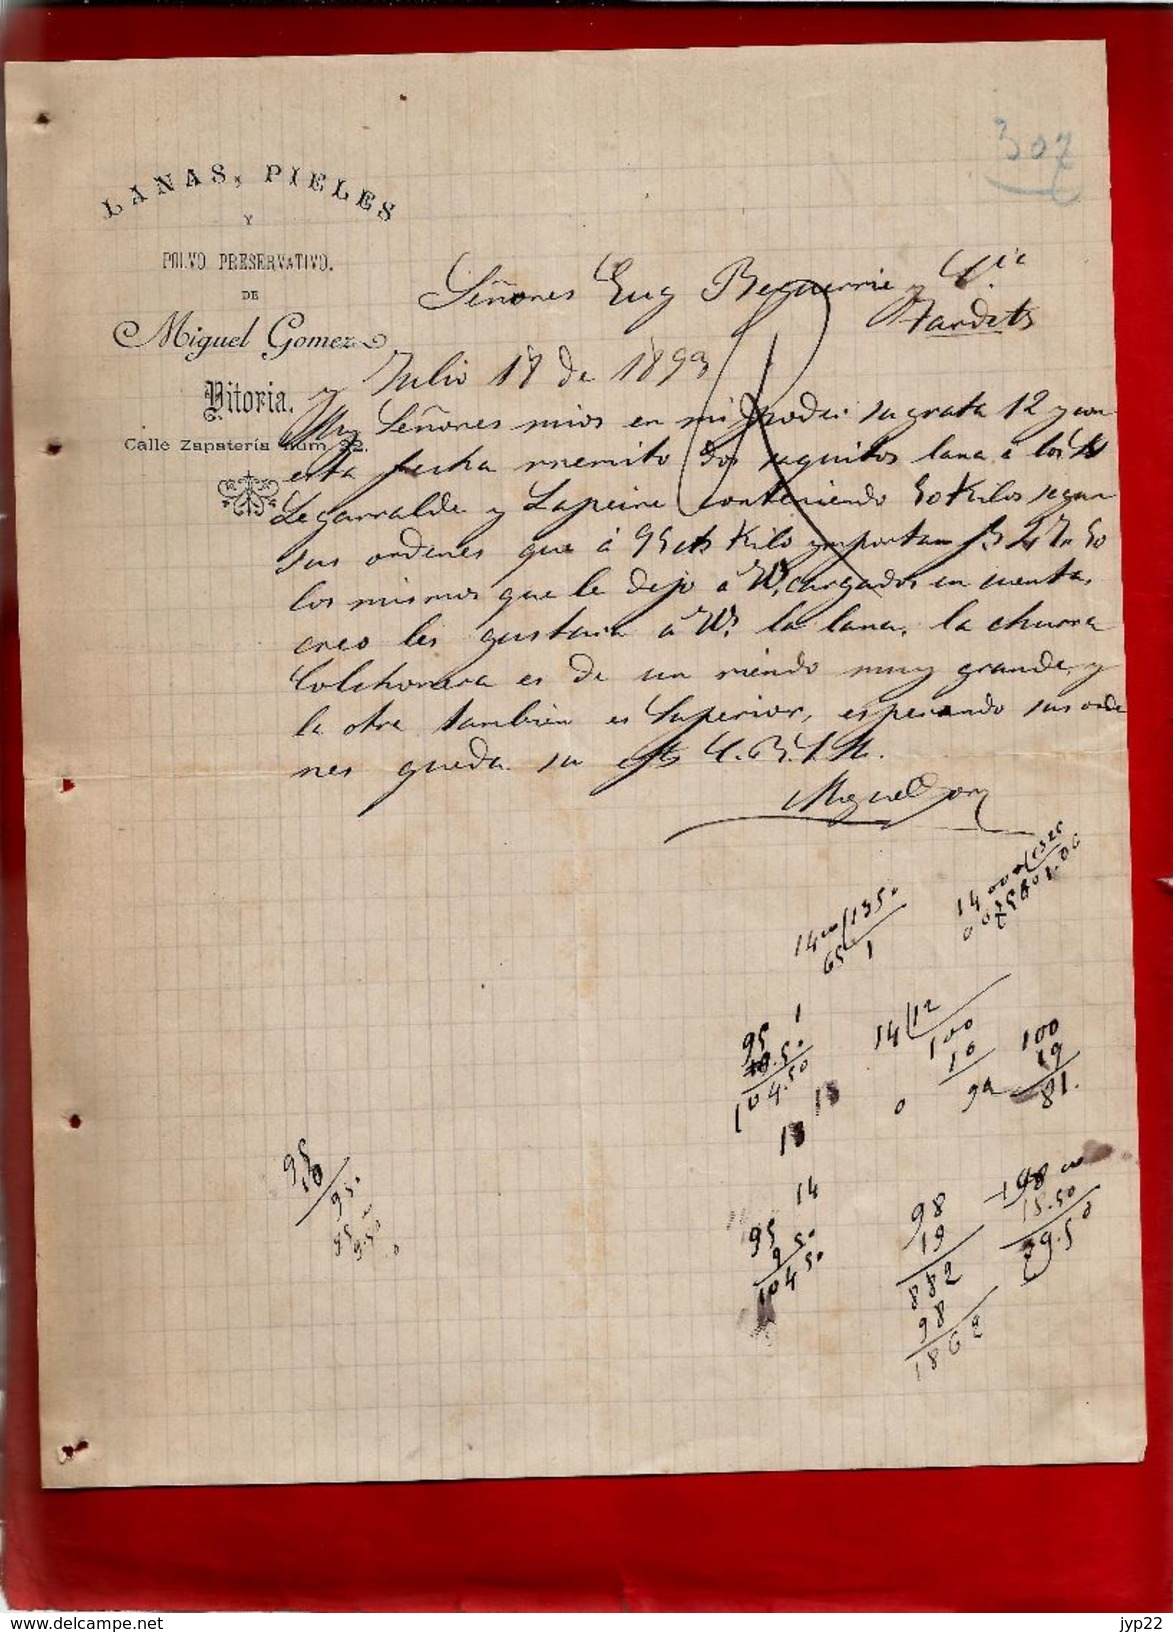 307
LANAS, PIELES
Y
POLVO PRESERVATIVO.
DE
Miguel Gomez
Vitoria.
Calle Zapatería núm. 22.
Señores Eug Beguerrie y Cia
Tardets
y Julio 18 de 1893
Muy Señores mios en mi poder su grata 12 y con
esta fecha rremito dos saquitos lana a los Ss
Legarralde y Lapeire conteniendo 50 Kilos segun
sus ordenes que á 95 cts Kilo ymportan 47.50
los mismos que le dejo á Vs. cargados en cuenta,
creo les gustara á Vs. la lana, la churra
Colchonera es de un rriendo muy grande, y
la otra tambien es Superior, esperando sus orde
nes queda su
Miguel Gomz
1400/1350
65 1
1400
95 1
9.50
104.50
14/12
100
10
90
0
100
19
81.
13
13
95
10
950
95
9.50
0
14
95
9.50
104.50
98
19
882
98
1862
98
18.50
79.50
delcampe.net
jyp22